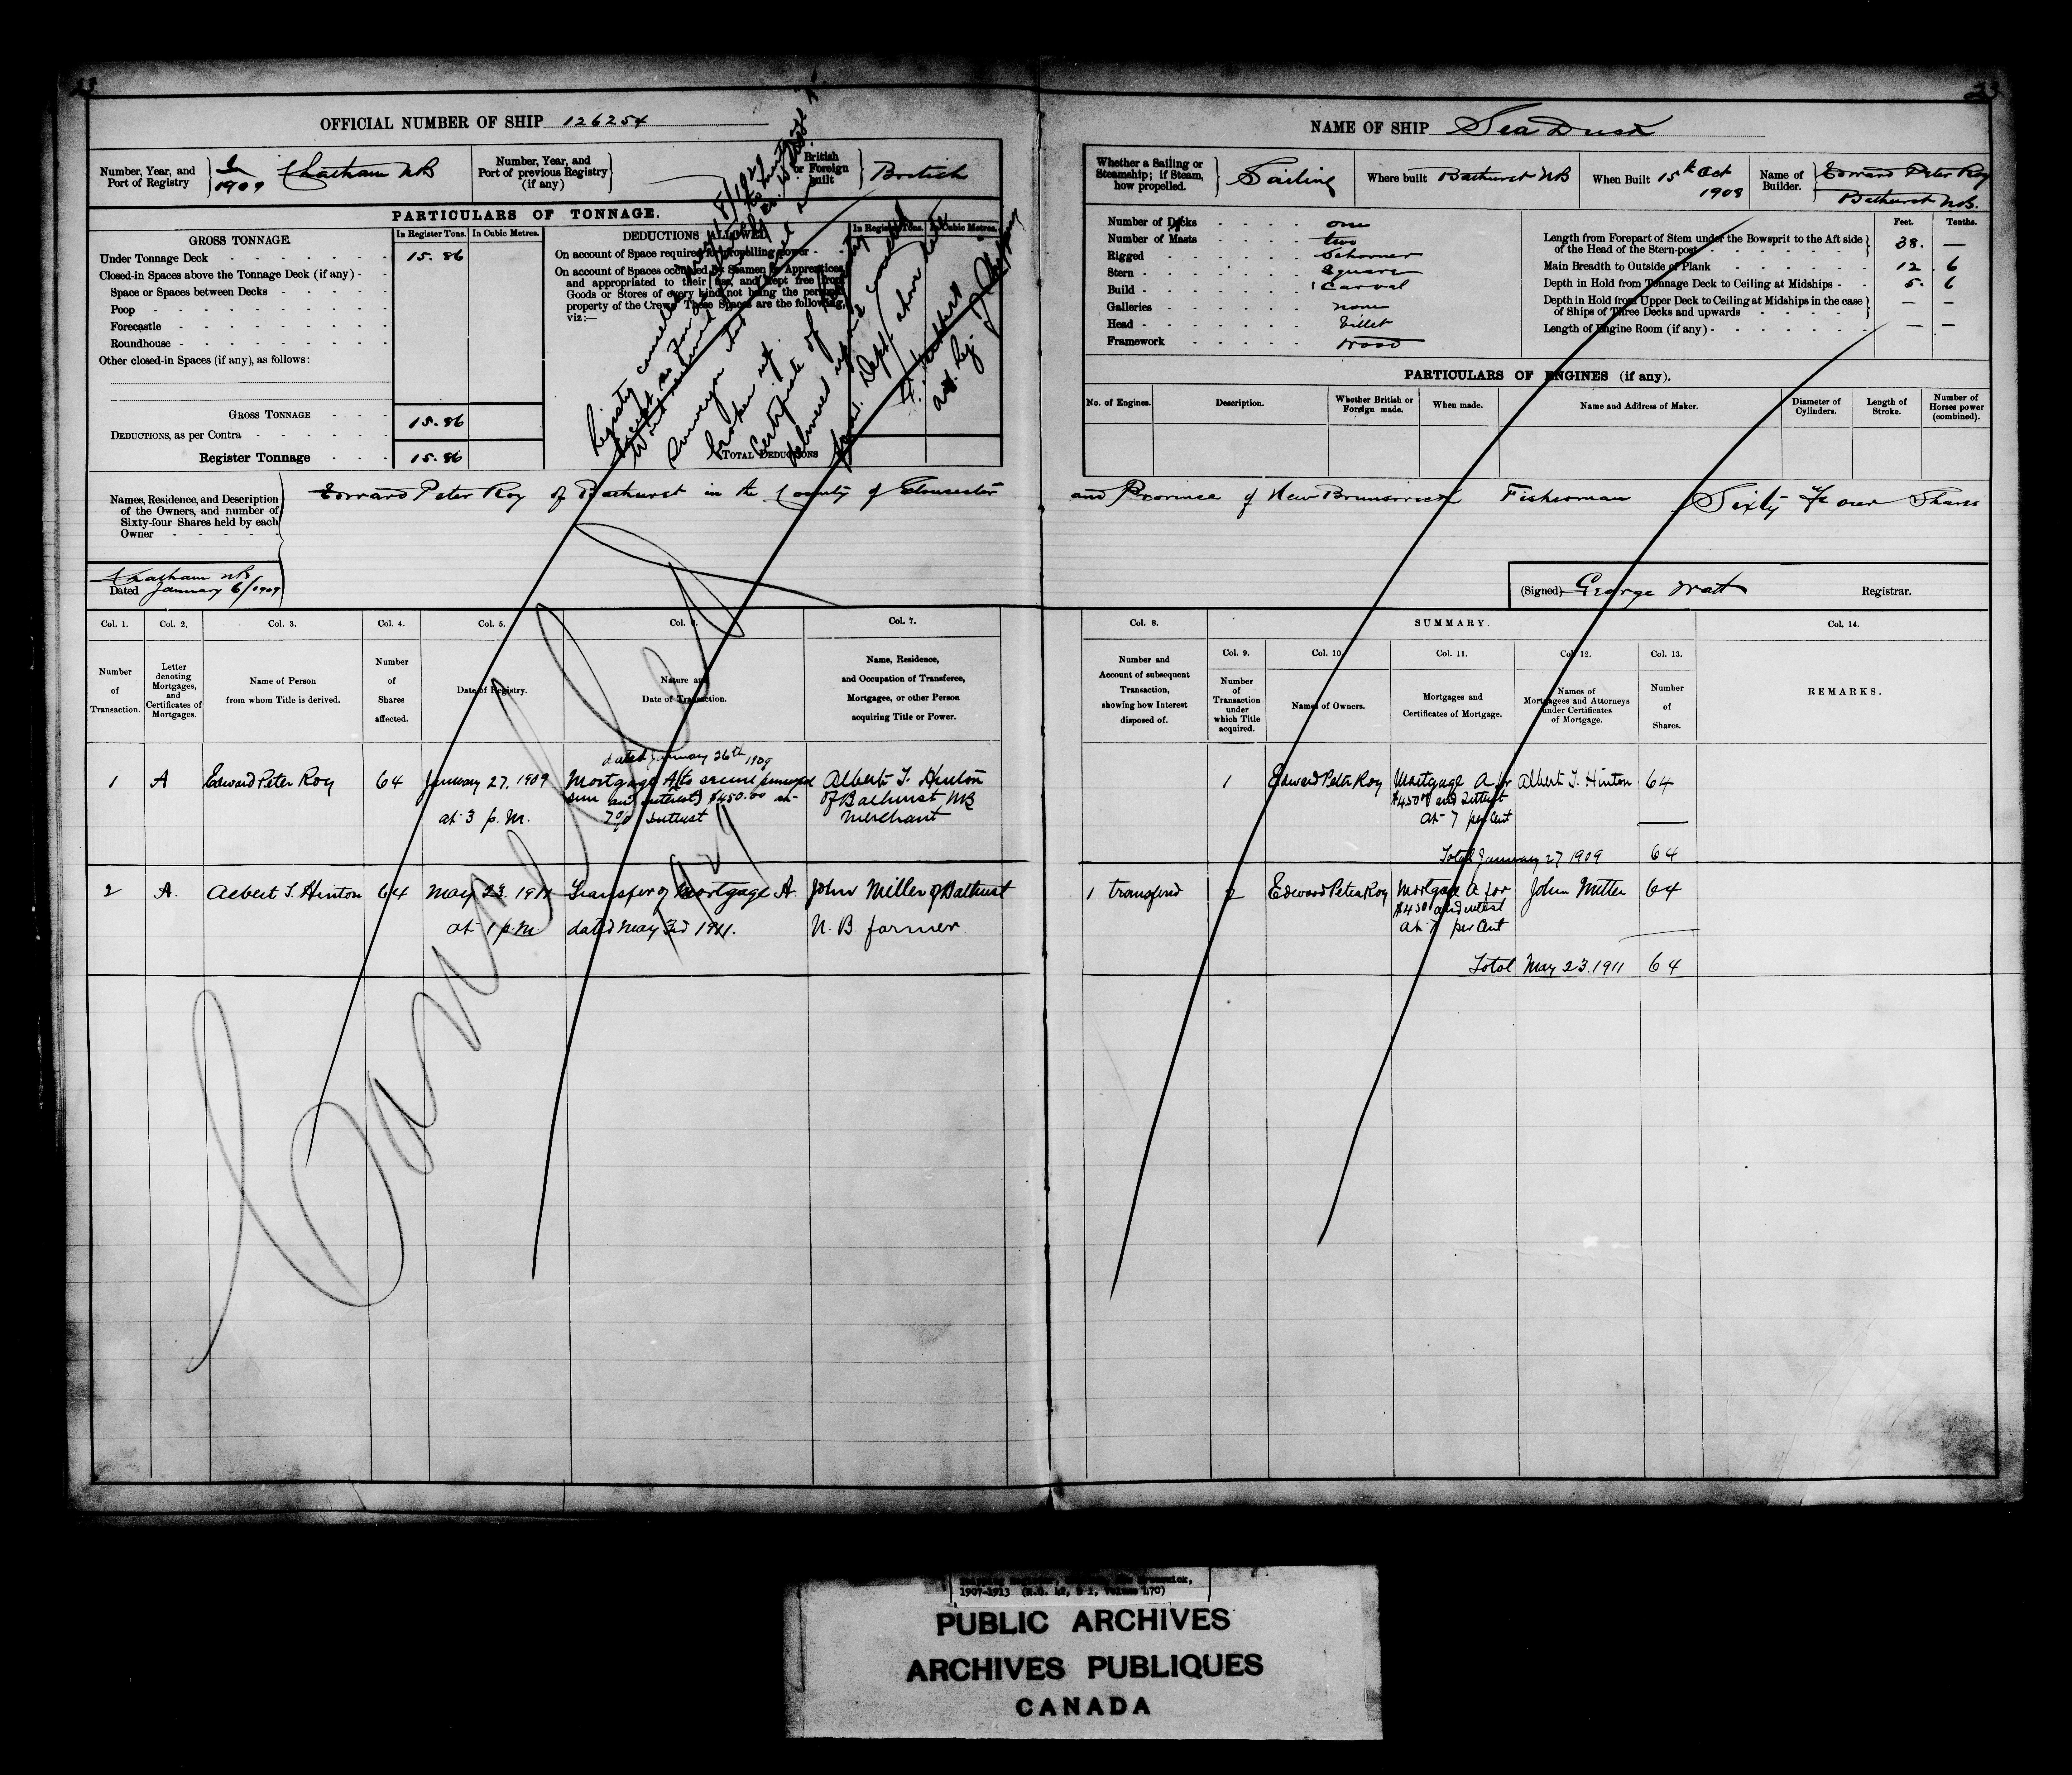 23
23
OFFICIAL NUMBER OF SHIP 126254
NAME OF SHIP Sea Dusk
Number, Year, and Port of Registry
1909 Chatham NB
Number, Year, and Port of previous Registry (if any)
British or Foreign built
British
Whether a Sailing or Steamship; if Steam, how propelled.
Sailing
Where built Bathurst NB
When Built 15th Oct 1908
Name of Builder.
Edward Peter Roy
Bathurst N.B.
PARTICULARS OF TONNAGE.
GROSS TONNAGE.
In Register Tons.
In Cubic Metres.
Under Tonnage Deck 15.86
Closed-in Spaces above the Tonnage Deck (if any)
Space or Spaces between Decks
Poop
Forecastle
Roundhouse
Other closed-in Spaces (if any), as follows:
GROSS TONNAGE 15.86
DEDUCTIONS, as per Contra
Register Tonnage 15.86
DEDUCTIONS ALLOWED
In Register Tons.
In Cubic Metres.
On account of Space required for propelling power
On account of Spaces occupied by Seamen or Apprentices and appropriated to their use, and kept free from Goods or Stores of every kind, not being the personal property of the Crew. These Spaces are the following, viz:—
TOTAL DEDUCTIONS
Registry
broken up.
Certificate of
Number of Decks one
Number of Masts two
Rigged Schooner
Stern Square
Build Carval
Galleries none
Head Fillet
Framework Wood
Feet. Tenths.
Length from Forepart of Stem under the Bowsprit to the Aft side of the Head of the Stern-post 38. —
Main Breadth to Outside of Plank 12 . 6
Depth in Hold from Tonnage Deck to Ceiling at Midships 5. 6
Depth in Hold from Upper Deck to Ceiling at Midships in the case of Ships of Three Decks and upwards — —
Length of Engine Room (if any) — —
PARTICULARS OF ENGINES (if any).
No. of Engines.
Description.
Whether British or Foreign made.
When made.
Name and Address of Maker.
Diameter of Cylinders.
Length of Stroke.
Number of Horses power (combined).
Names, Residence, and Description of the Owners, and number of Sixty-four Shares held by each Owner
Edward Peter Roy of Bathurst in the County of Gloucester and Province of New Brunswick Fisherman Sixty Four Shares
Chatham NB
Dated January 6/1909
(Signed) George Watt Registrar.
Col. 1.
Col. 2.
Col. 3.
Col. 4.
Col. 5.
Col. 6.
Col. 7.
Col. 8.
SUMMARY.
Col. 9.
Col. 10.
Col. 11.
Col. 12.
Col. 13.
Col. 14.
Number of Transaction.
Letter denoting Mortgages, and Certificates of Mortgages.
Name of Person from whom Title is derived.
Number of Shares affected.
Date of Registry.
Nature and Date of Transaction.
Name, Residence, and Occupation of Transferee, Mortgagee, or other Person acquiring Title or Power.
Number and Account of subsequent Transaction, showing how Interest disposed of.
Number of Transaction under which Title acquired.
Names of Owners.
Mortgages and Certificates of Mortgage.
Names of Mortgagees and Attorneys under Certificates of Mortgage.
Number of Shares.
REMARKS.
1 A Edward Peter Roy 64 January 27, 1909 at 3 p.m.
dated January 26th 1909
Mortgage A (to secure principal sum and interest) $450.00 at 7% Interest
Albert T. Hinton of Bathurst, NB Merchant
1 Edward Peter Roy Mortgage A for $450.00 and Interest at 7 per Cent
Albert T. Hinton 64
Total January 27 1909 64
2 A. Albert T. Hinton 64 May 23. 1911 at 1 p.m.
Transfer of Mortgage A. dated May 3rd 1911.
John Miller of Bathurst N. B farmer
1 transferred 2 Edward Peter Roy Mortgage A for $450 and interest at 7 per Cent
John Miller 64
Total May 23. 1911 64
Cancelled
1907-1913 (R.G. 42, B 1, Volume 470)
PUBLIC ARCHIVES
ARCHIVES PUBLIQUES
CANADA